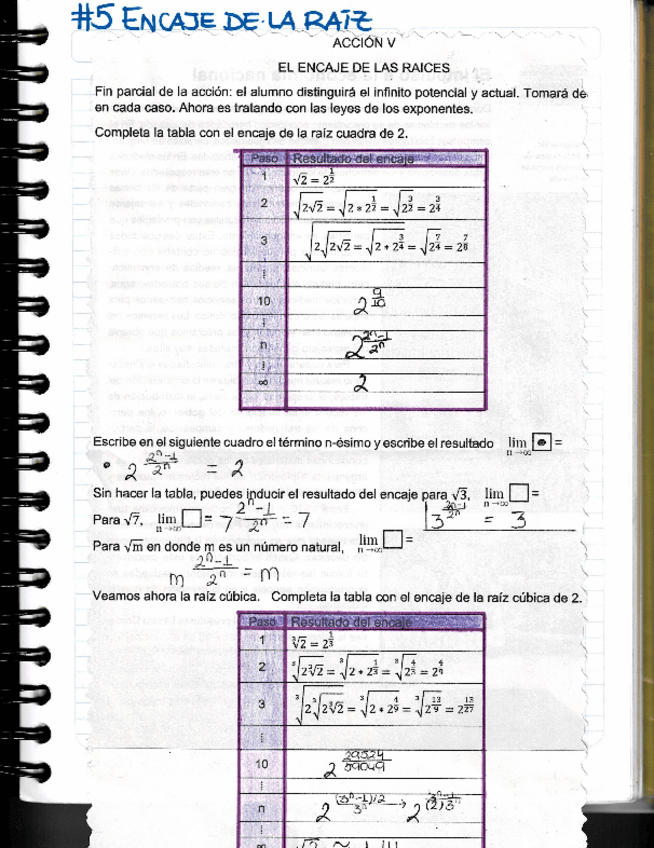 #5 ENCAJE DE LA RAÍZ
ACCIÓN V
EL ENCAJE DE LAS RAICES
Fin parcial de la acción: el alumno distinguirá el infinito potencial y actual. Tomará de
en cada caso. Ahora es tratando con las leyes de los exponentes.
Completa la tabla con el encaje de la raíz cuadra de 2.
Paso Resultado del encaje
1 √2 = 2^(1/2)
2 √(2√2) = √(2 * 2^(1/2)) = √(2^(3/2)) = 2^(3/4)
3 √(2√(2√2)) = √(2 * 2^(3/4)) = √(2^(7/4)) = 2^(7/8)
⋮
10 2^(9/10)
⋮
n 2^((2^n-1)/2^n)
⋮
∞ 2
Escribe en el siguiente cuadro el término n-ésimo y escribe el resultado lim n→∞ [•] =
• 2^((2^n-1)/2^n) = 2
Sin hacer la tabla, puedes inducir el resultado del encaje para √3, lim n→∞ □ =
3^((2^n-1)/2^n) = 3
Para √7, lim n→∞ □ = 7^((2^n-1)/2^n) = 7
Para √m en donde m es un número natural, lim n→∞ □ =
m^((2^n-1)/2^n) = m
Veamos ahora la raíz cúbica. Completa la tabla con el encaje de la raíz cúbica de 2.
Paso Resultado del encaje
1 ∛2 = 2^(1/3)
2 ∛(2∛2) = ∛(2 * 2^(1/3)) = ∛(2^(4/3)) = 2^(4/9)
3 ∛(2∛(2∛2)) = ∛(2 * 2^(4/9)) = ∛(2^(13/9)) = 2^(13/27)
⋮
10 2^(29524/59049)
⋮
n 2^(((3^n-1)/2)/3^n) → 2^((3^n-1)/((2)3^n))
⋮
∞